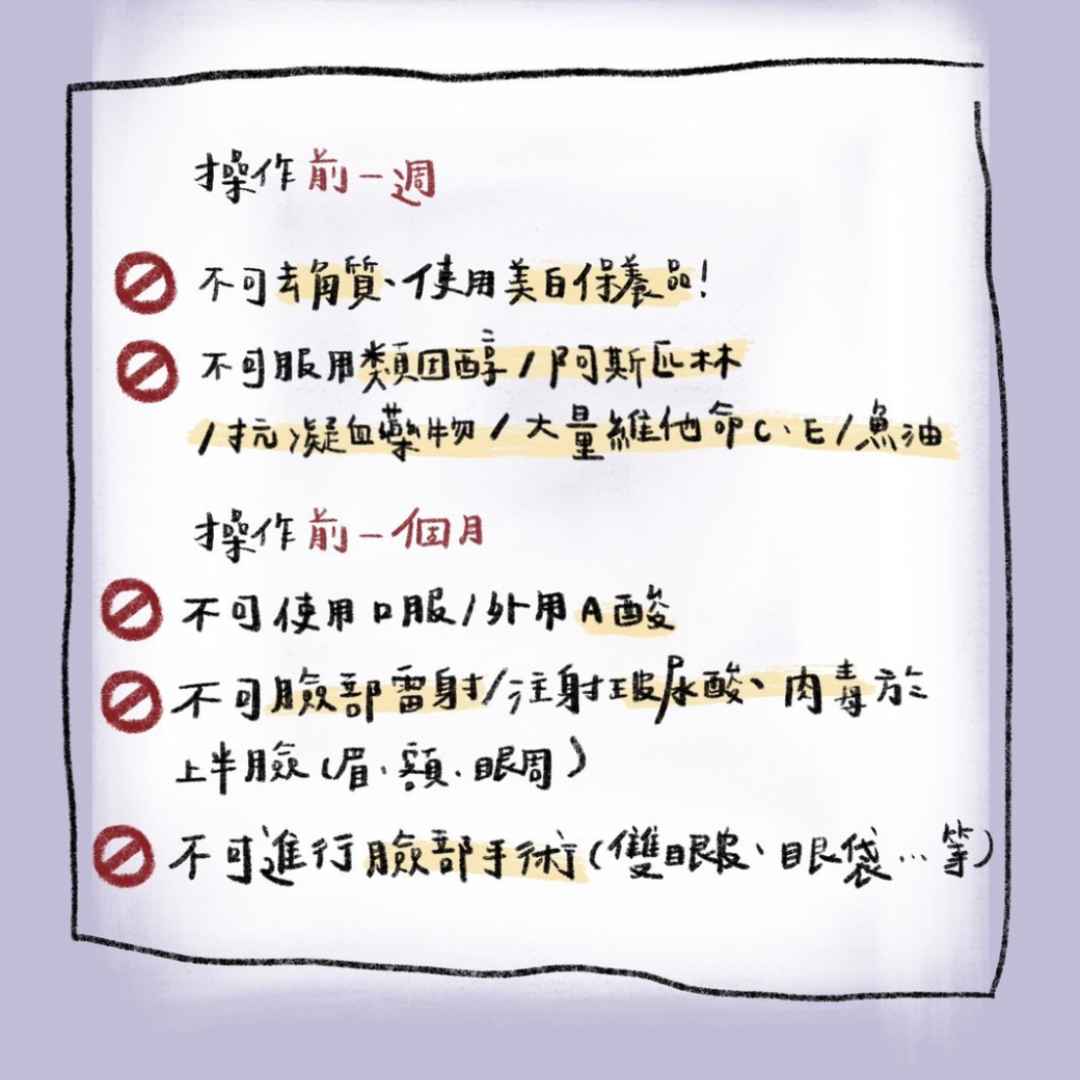 操作前一週
不可去角質、使用美白保養品!
不可服用類固醇/阿斯匹林
/抗凝血藥物/大量維他命C、E/魚油
操作前一個月
不可使用口服/外用A酸
不可臉部雷射/注射玻尿酸、肉毒於
上半臉(眉、額、眼周)
不可進行臉部手術(雙眼皮、眼袋…等)